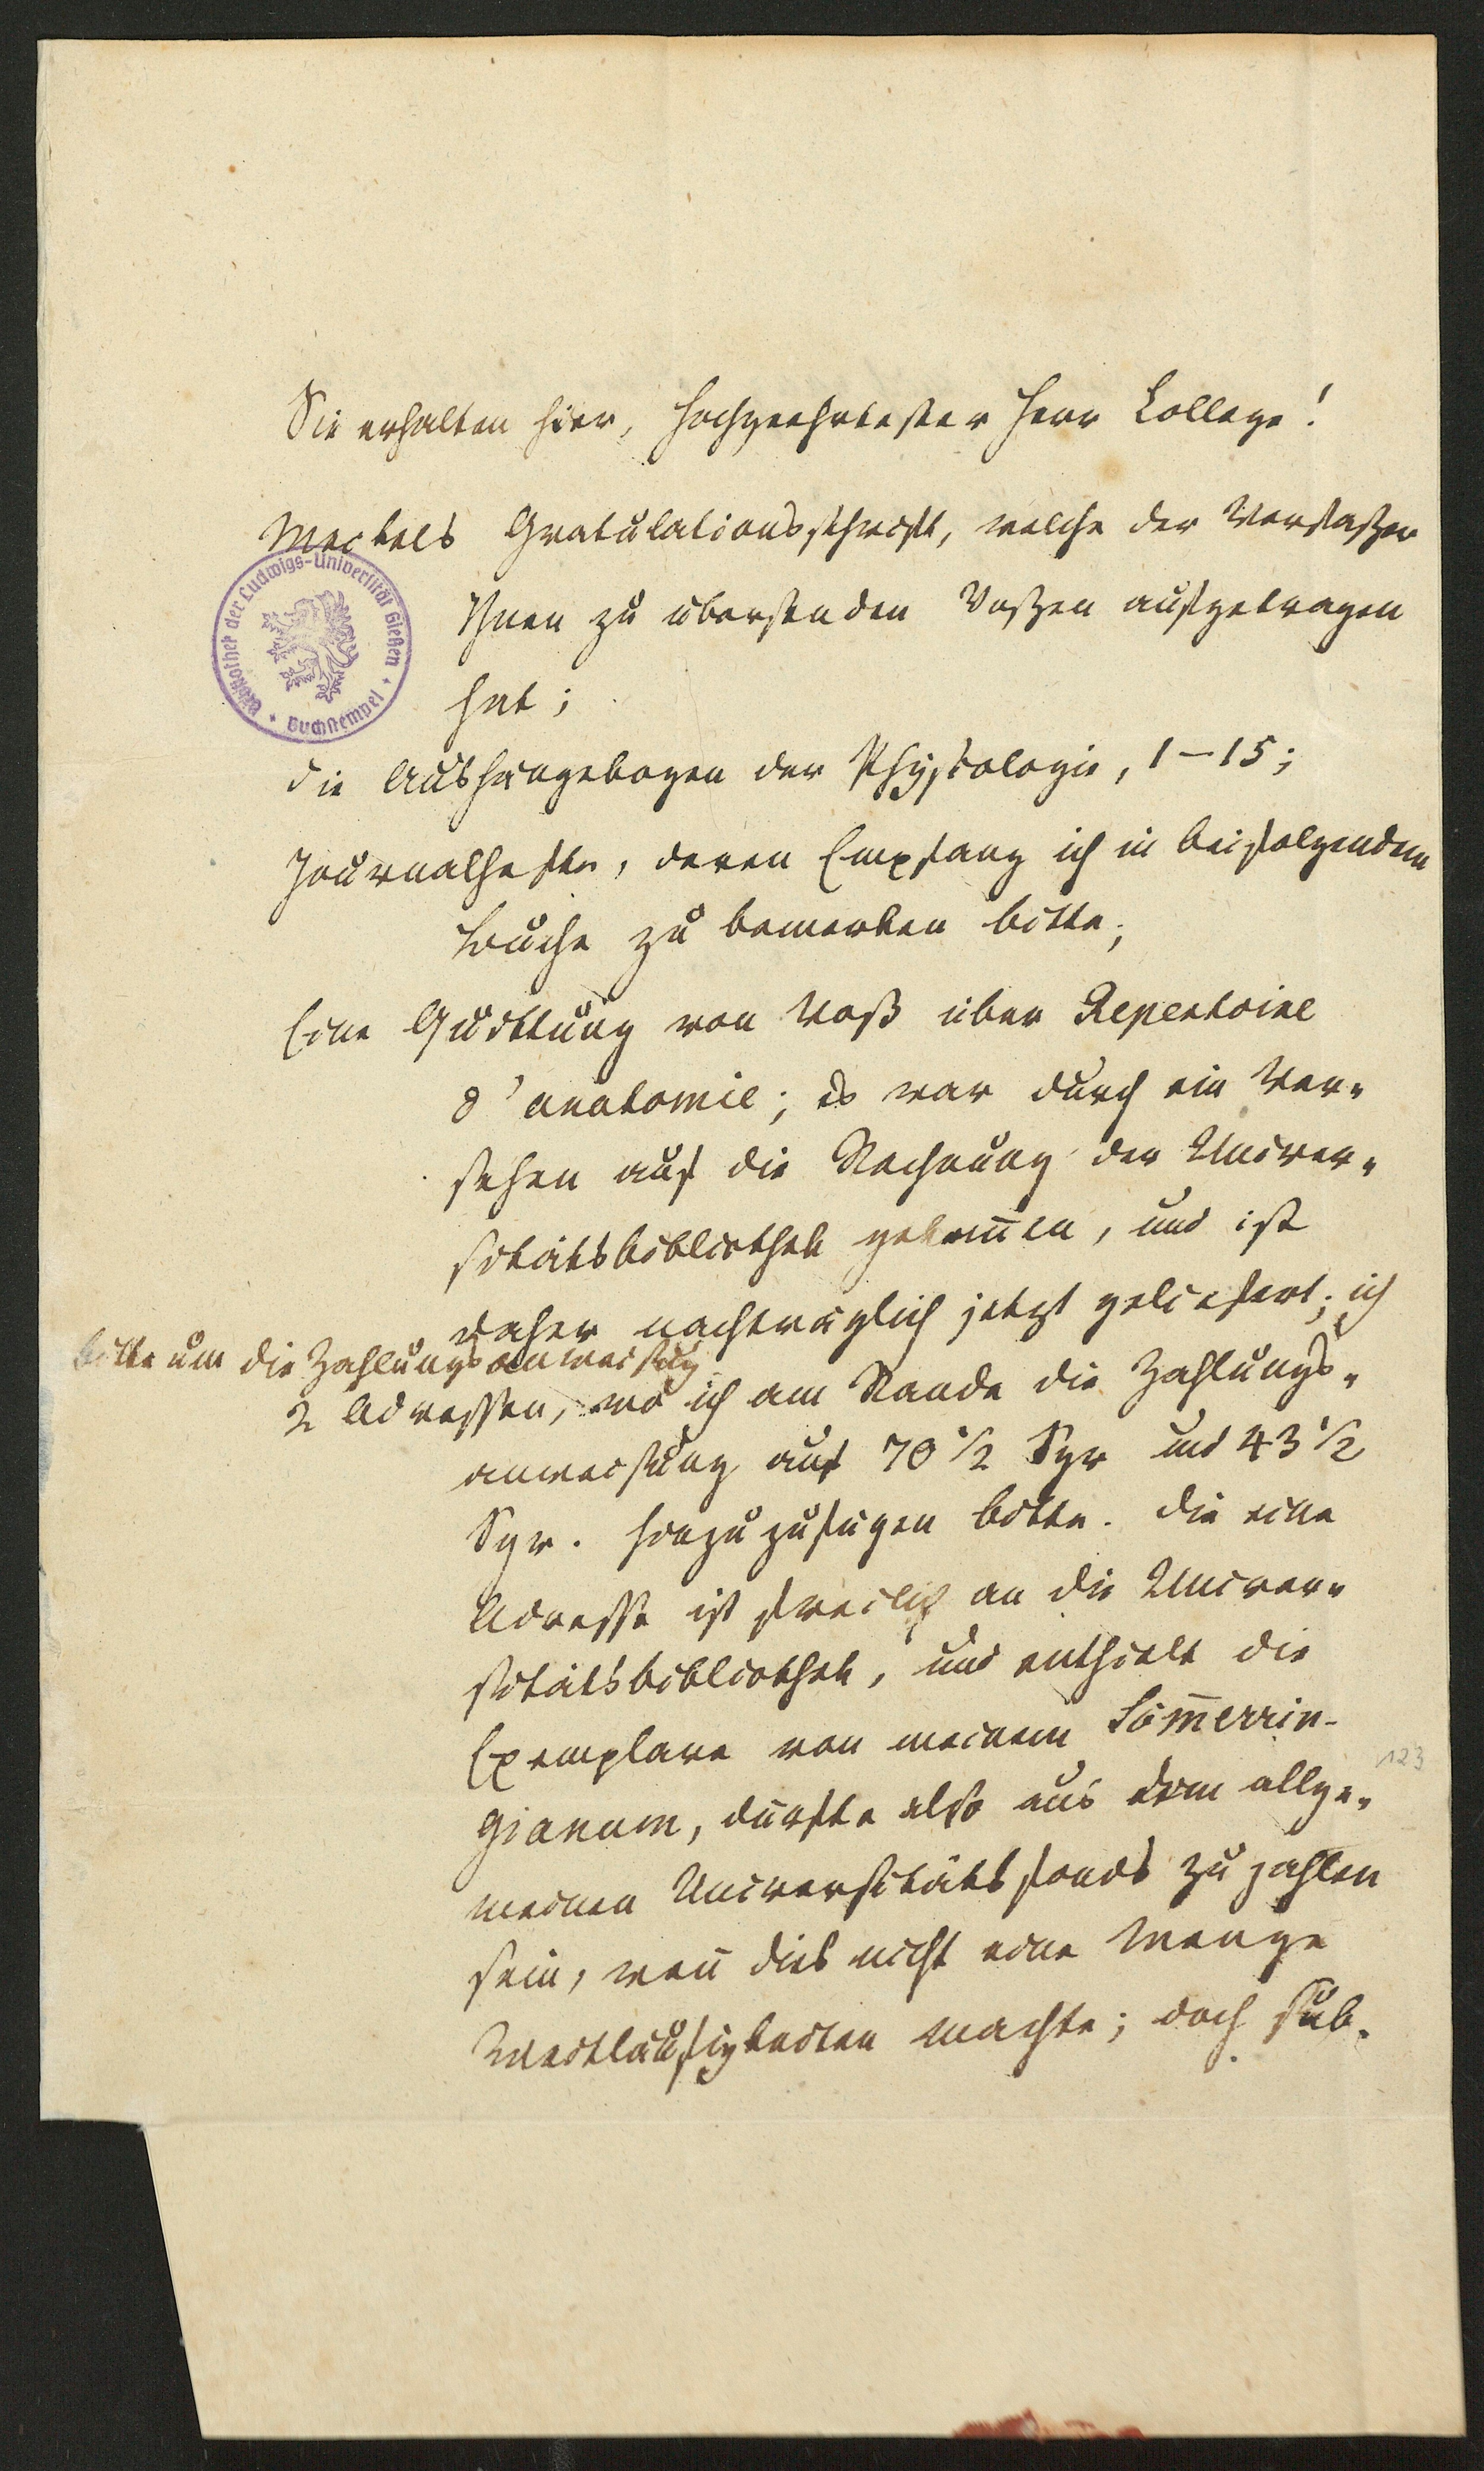 Sie erhalten hier, hochgeehrtester Herr College!
Meckels Gratulationsschrift, welche der Verfaßer
Ihnen zu übersenden Voßen aufgetragen
hat;
die Aushängebogen der Physiologie, 1–15;
Journalhefte, deren Empfang ich in beifolgendem
Buche zu bemerken bitte;
Eine Quittung von Voß über Repertoire
d'anatomie; es war durch ein Ver-
sehen auf die Rechnung der Univer-
sitätsbibliothek gekom̅en, und ist
daher nachträglich jetzt geliefert; ich
bitte um die Zahlungsanweisung
2 Adressen, wo ich am Rande die Zahlungs-
anweisung auf 70 1/2 Sgr und 43 1/2
Sgr. hinzuzufügen bitte. Die eine
Adresse ist freilich an die Univer-
sitätsbibliothek, und enthielt die
Exemplare von meinem Söm̅errin-
gianum, dürfte also aus dem allge-
meinen Universitätsfonds zu zahlen
sein, wen̅ dies nicht eine Menge
Weitläufigkeiten machte; doch sub-
Bibliothek der Ludwigs-Universität Gießen
Buchstempel
123